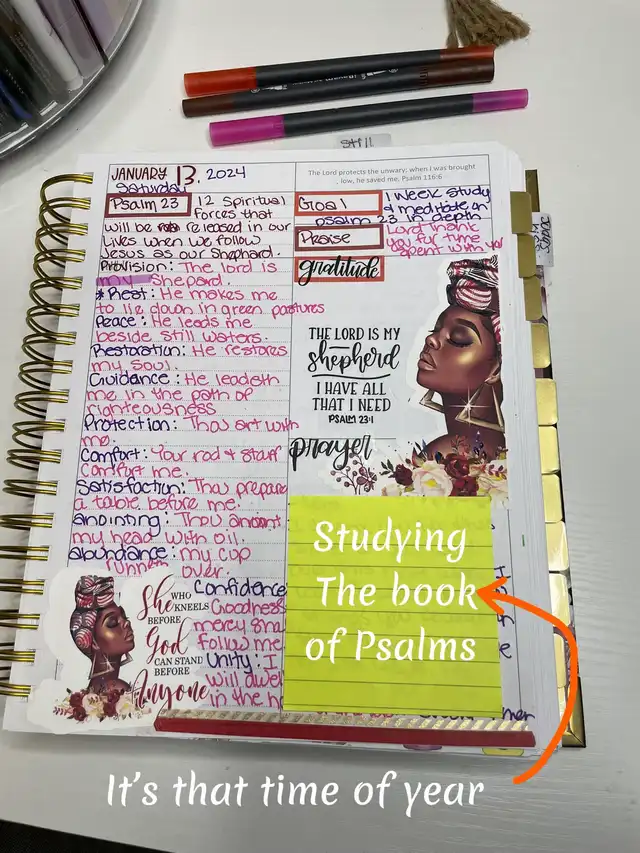 Still
JANUARY 13, 2024
Saturday
The Lord protects the unwary; when I was brought
low, he saved me. Psalm 116:6
Psalm 23
12 Spiritual
Forces that
will be released in our
lives when we follow
Jesus as our Shephard.
Provision: The lord is
my Shepard.
*Rest: He makes me
to lie down in green pastures
Peace: He leads me
beside still waters.
Restoration: He restores
my soul.
Guidance: He leadeth
me in the path of
righteousness
Protection: Thou art with
me.
Comfort: Your rod & staff
comfort me.
Satisfaction: Thou prepare
a table before me.
anointing: Thou anoint
my head with oil.
abundance: my cup
runneth over.
Confidence
Goodness
mercy sha
follow me
Unity: I
will dwel
in the h
She WHO
KNEELS
BEFORE
God
CAN STAND
BEFORE
Anyone
Goal
1 Week study
& meditate on
psalm 23 in depth
Praise
Lord thank
you for time
spent with you
gratitude
THE LORD IS MY
shepherd
I HAVE ALL
THAT I NEED
PSALM 23:1
prayer
Studying
The book
of Psalms
It's that time of year